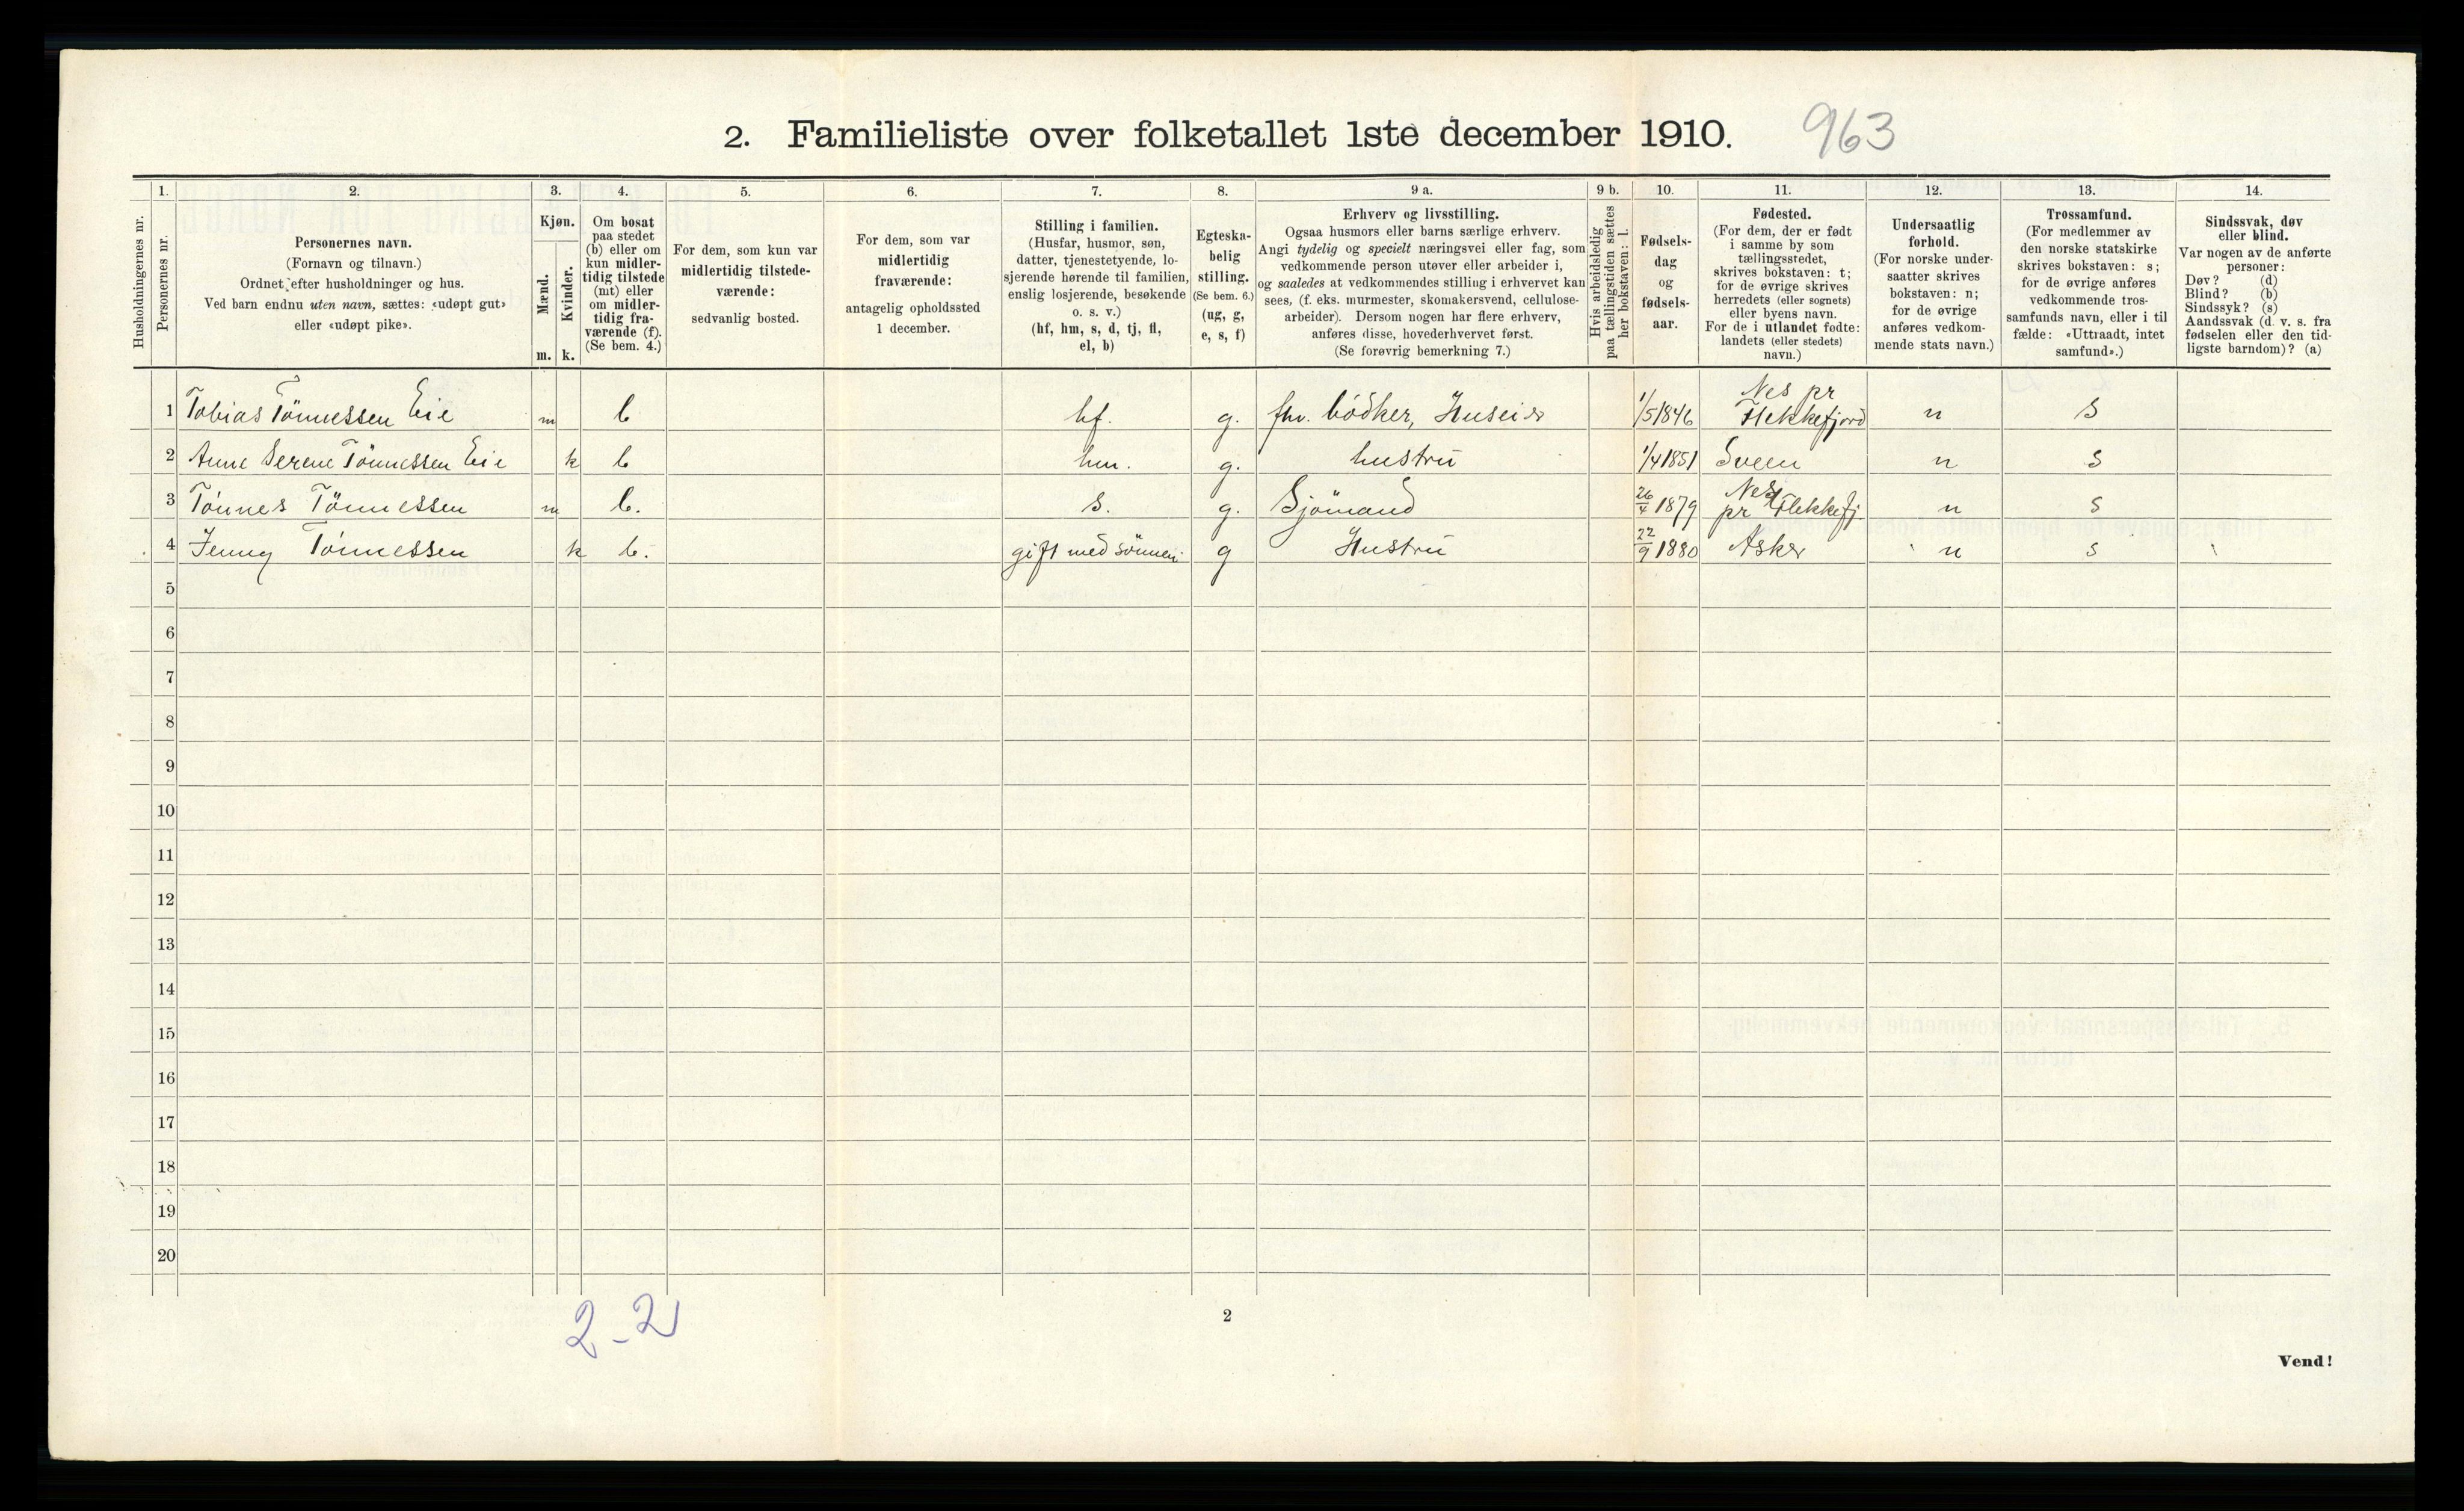 2. Familieliste over folketallet 1ste december 1910. 963
1. 2. 3. 4. 5. 6. 7. 8. 9 a. 9 b. 10. 11. 12. 13. 14.
Husholdningernes nr.
Personernes nr.
Personernes navn.
(Fornavn og tilnavn.)
Ordnet efter husholdninger og hus.
Ved barn endnu uten navn, sættes: «udøpt gut»
eller «udøpt pike».
Kjøn.
Mænd.
Kvinder.
m. k.
Om bosat
paa stedet
(b) eller om
kun midler-
tidig tilstede
(mt) eller
om midler-
tidig fra-
værende (f).
(Se bem. 4.)
For dem, som kun var
midlertidig tilstede-
værende:
sedvanlig bosted.
For dem, som var
midlertidig
fraværende:
antagelig opholdssted
1 december.
Stilling i familien.
(Husfar, husmor, søn,
datter, tjenestetyende, lo-
sjerende hørende til familien,
enslig losjerende, besøkende
o. s. v.)
(hf, hm, s, d, tj, fl,
el, b)
Egteska-
belig
stilling.
(Se bem. 6.)
(ug, g,
e, s, f)
Erhverv og livsstilling.
Ogsaa husmors eller barns særlige erhverv.
Angi tydelig og specielt næringsvei eller fag, som
vedkommende person utøver eller arbeider i,
og saaledes at vedkommendes stilling i erhvervet kan
sees, (f. eks. murmester, skomakersvend, cellulose-
arbeider). Dersom nogen har flere erhverv,
anføres disse, hovederhvervet først.
(Se forøvrig bemerkning 7.)
Hvis arbeidsledig
paa tællingstiden sættes
her bokstaven: l.
Fødsels-
dag
og
fødsels-
aar.
Fødested.
(For dem, der er født
i samme by som
tællingsstedet,
skrives bokstaven: t;
for de øvrige skrives
herredets (eller sognets)
eller byens navn.
For de i utlandet fødte:
landets (eller stedets)
navn.)
Undersaatlig
forhold.
(For norske under-
saatter skrives
bokstaven: n;
for de øvrige
anføres vedkom-
mende stats navn.)
Trossamfund.
(For medlemmer av
den norske statskirke
skrives bokstaven: s;
for de øvrige anføres
vedkommende tros-
samfunds navn, eller i til
fælde: «Uttraadt, intet
samfund».)
Sindssvak, døv
eller blind.
Var nogen av de anførte
personer:
Døv? (d)
Blind? (b)
Sindssyk? (s)
Aandssvak (d. v. s. fra
fødselen eller den tid-
ligste barndom)? (a)
1 Tobias Tönnessen Eie m b hf. g. fhv. bödker, Huseier 1/5 1846 Nes pr Flekkefjord n s
2 Anne Serene Tönnessen Eie k b hm. g. hustru 1/4 1851 n s
3 Tönnes Tönnessen m b. s. g. Sjömand 26/4 1879 Nes pr Flekkefj. n s
4 Jenny Tönnessen k b. gift med sönnen g Hustru 22/9 1880 Asker n s
5
6
7
8
9
10
11
12
13
14
15
16
17
18
19
20
2-2
2
Vend!